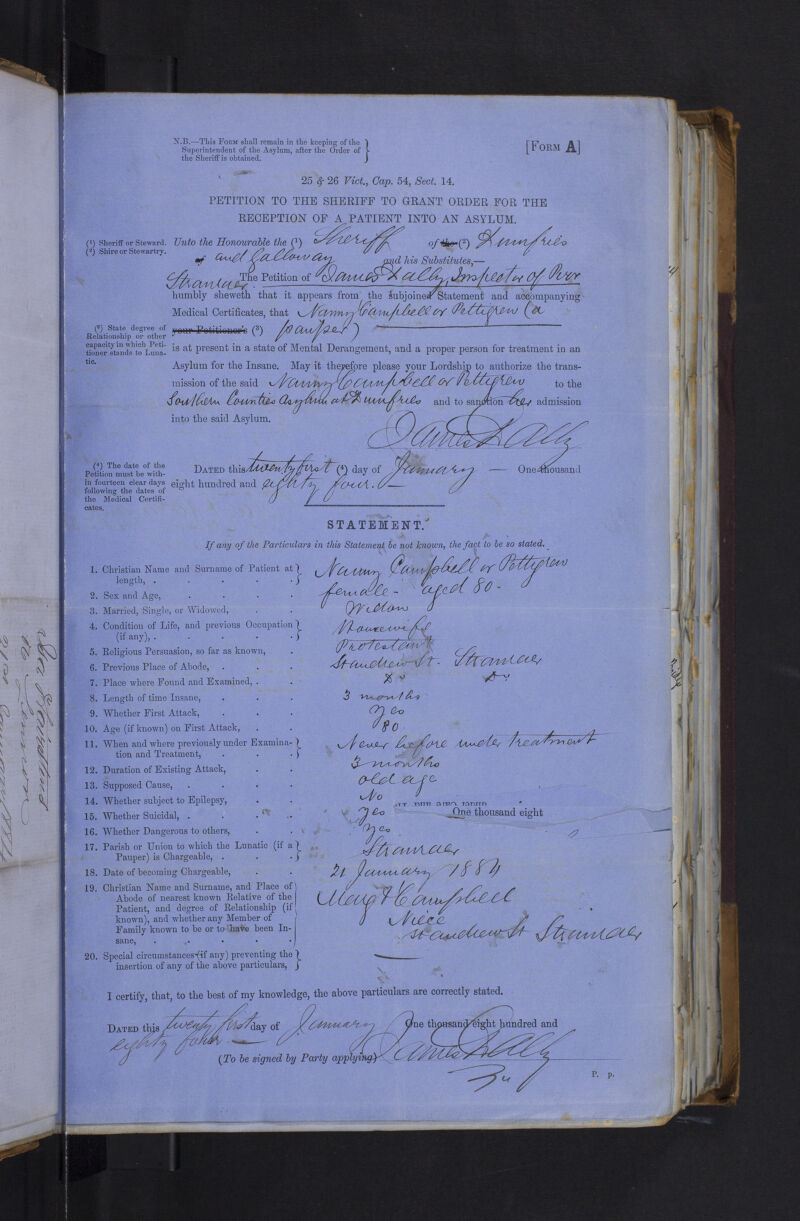 N.B.—This Form shall remain in the keeping of the
Superintendent of the Asylum, after the Order of
the Sheriff is obtained.
[Form A]
25 & 26 Vict., Cap. 54, Sect. 14.
PETITION TO THE SHERIFF TO GRANT ORDER FOR THE
RECEPTION OF A PATIENT INTO AN ASYLUM.
(¹) Sheriff or Steward.
(²) Shire or Stewartry.
Unto the Honourable the (¹) Sheriff of the (²) Dumfries
and Galloway and his Substitutes,—
Stranraer The Petition of James Dally, Inspector of Poor
humbly sheweth that it appears from the subjoined Statement and accompanying
Medical Certificates, that Nanny Campbell or Pettigrew (a
(³) State degree of
Relationship or other
capacity in which Peti-
tioner stands to Luna-
tic.
your Petitioner's (³) pauper)
is at present in a state of Mental Derangement, and a proper person for treatment in an
Asylum for the Insane. May it therefore please your Lordship to authorize the trans-
mission of the said Nanny Campbell or Pettigrew to the
Southern Counties Asylum at Dumfries and to sanction her admission
into the said Asylum.
James Dally
(⁴) The date of the
Petition must be with-
in fourteen clear days
following the dates of
the Medical Certifi-
cates.
Dated this twenty first (⁴) day of January — One thousand
eight hundred and eighty four. —
STATEMENT.
If any of the Particulars in this Statement be not known, the fact to be so stated.
1. Christian Name and Surname of Patient at length, . Nanny Campbell or Pettigrew
2. Sex and Age, female - aged 80 -
3. Married, Single, or Widowed, Widow
4. Condition of Life, and previous Occupation (if any), . Housewife
5. Religious Persuasion, so far as known, Protestant
6. Previous Place of Abode, St Andrew St. Stranraer
7. Place where Found and Examined, . Do Do
8. Length of time Insane, 3 months
9. Whether First Attack, Yes
10. Age (if known) on First Attack, 80
11. When and where previously under Examina-
tion and Treatment, Never before under treatment
12. Duration of Existing Attack, 3 months
13. Supposed Cause, old age
14. Whether subject to Epilepsy, No
15. Whether Suicidal, . Yes One thousand eight
16. Whether Dangerous to others, Yes
17. Parish or Union to which the Lunatic (if a
Pauper) is Chargeable, . Stranraer
18. Date of becoming Chargeable, 21 January 1884
19. Christian Name and Surname, and Place of
Abode of nearest known Relative of the
Patient, and degree of Relationship (if
known), and whether any Member of
Family known to be or to have been In-
sane, Margt Campbell
Niece
St Andrew St Stranraer
20. Special circumstances (if any) preventing the
insertion of any of the above particulars, —
I certify, that, to the best of my knowledge, the above particulars are correctly stated.
Dated this twenty first day of January One thousand eight hundred and
eighty four —
(To be signed by Party applying) James Dally
P. p.